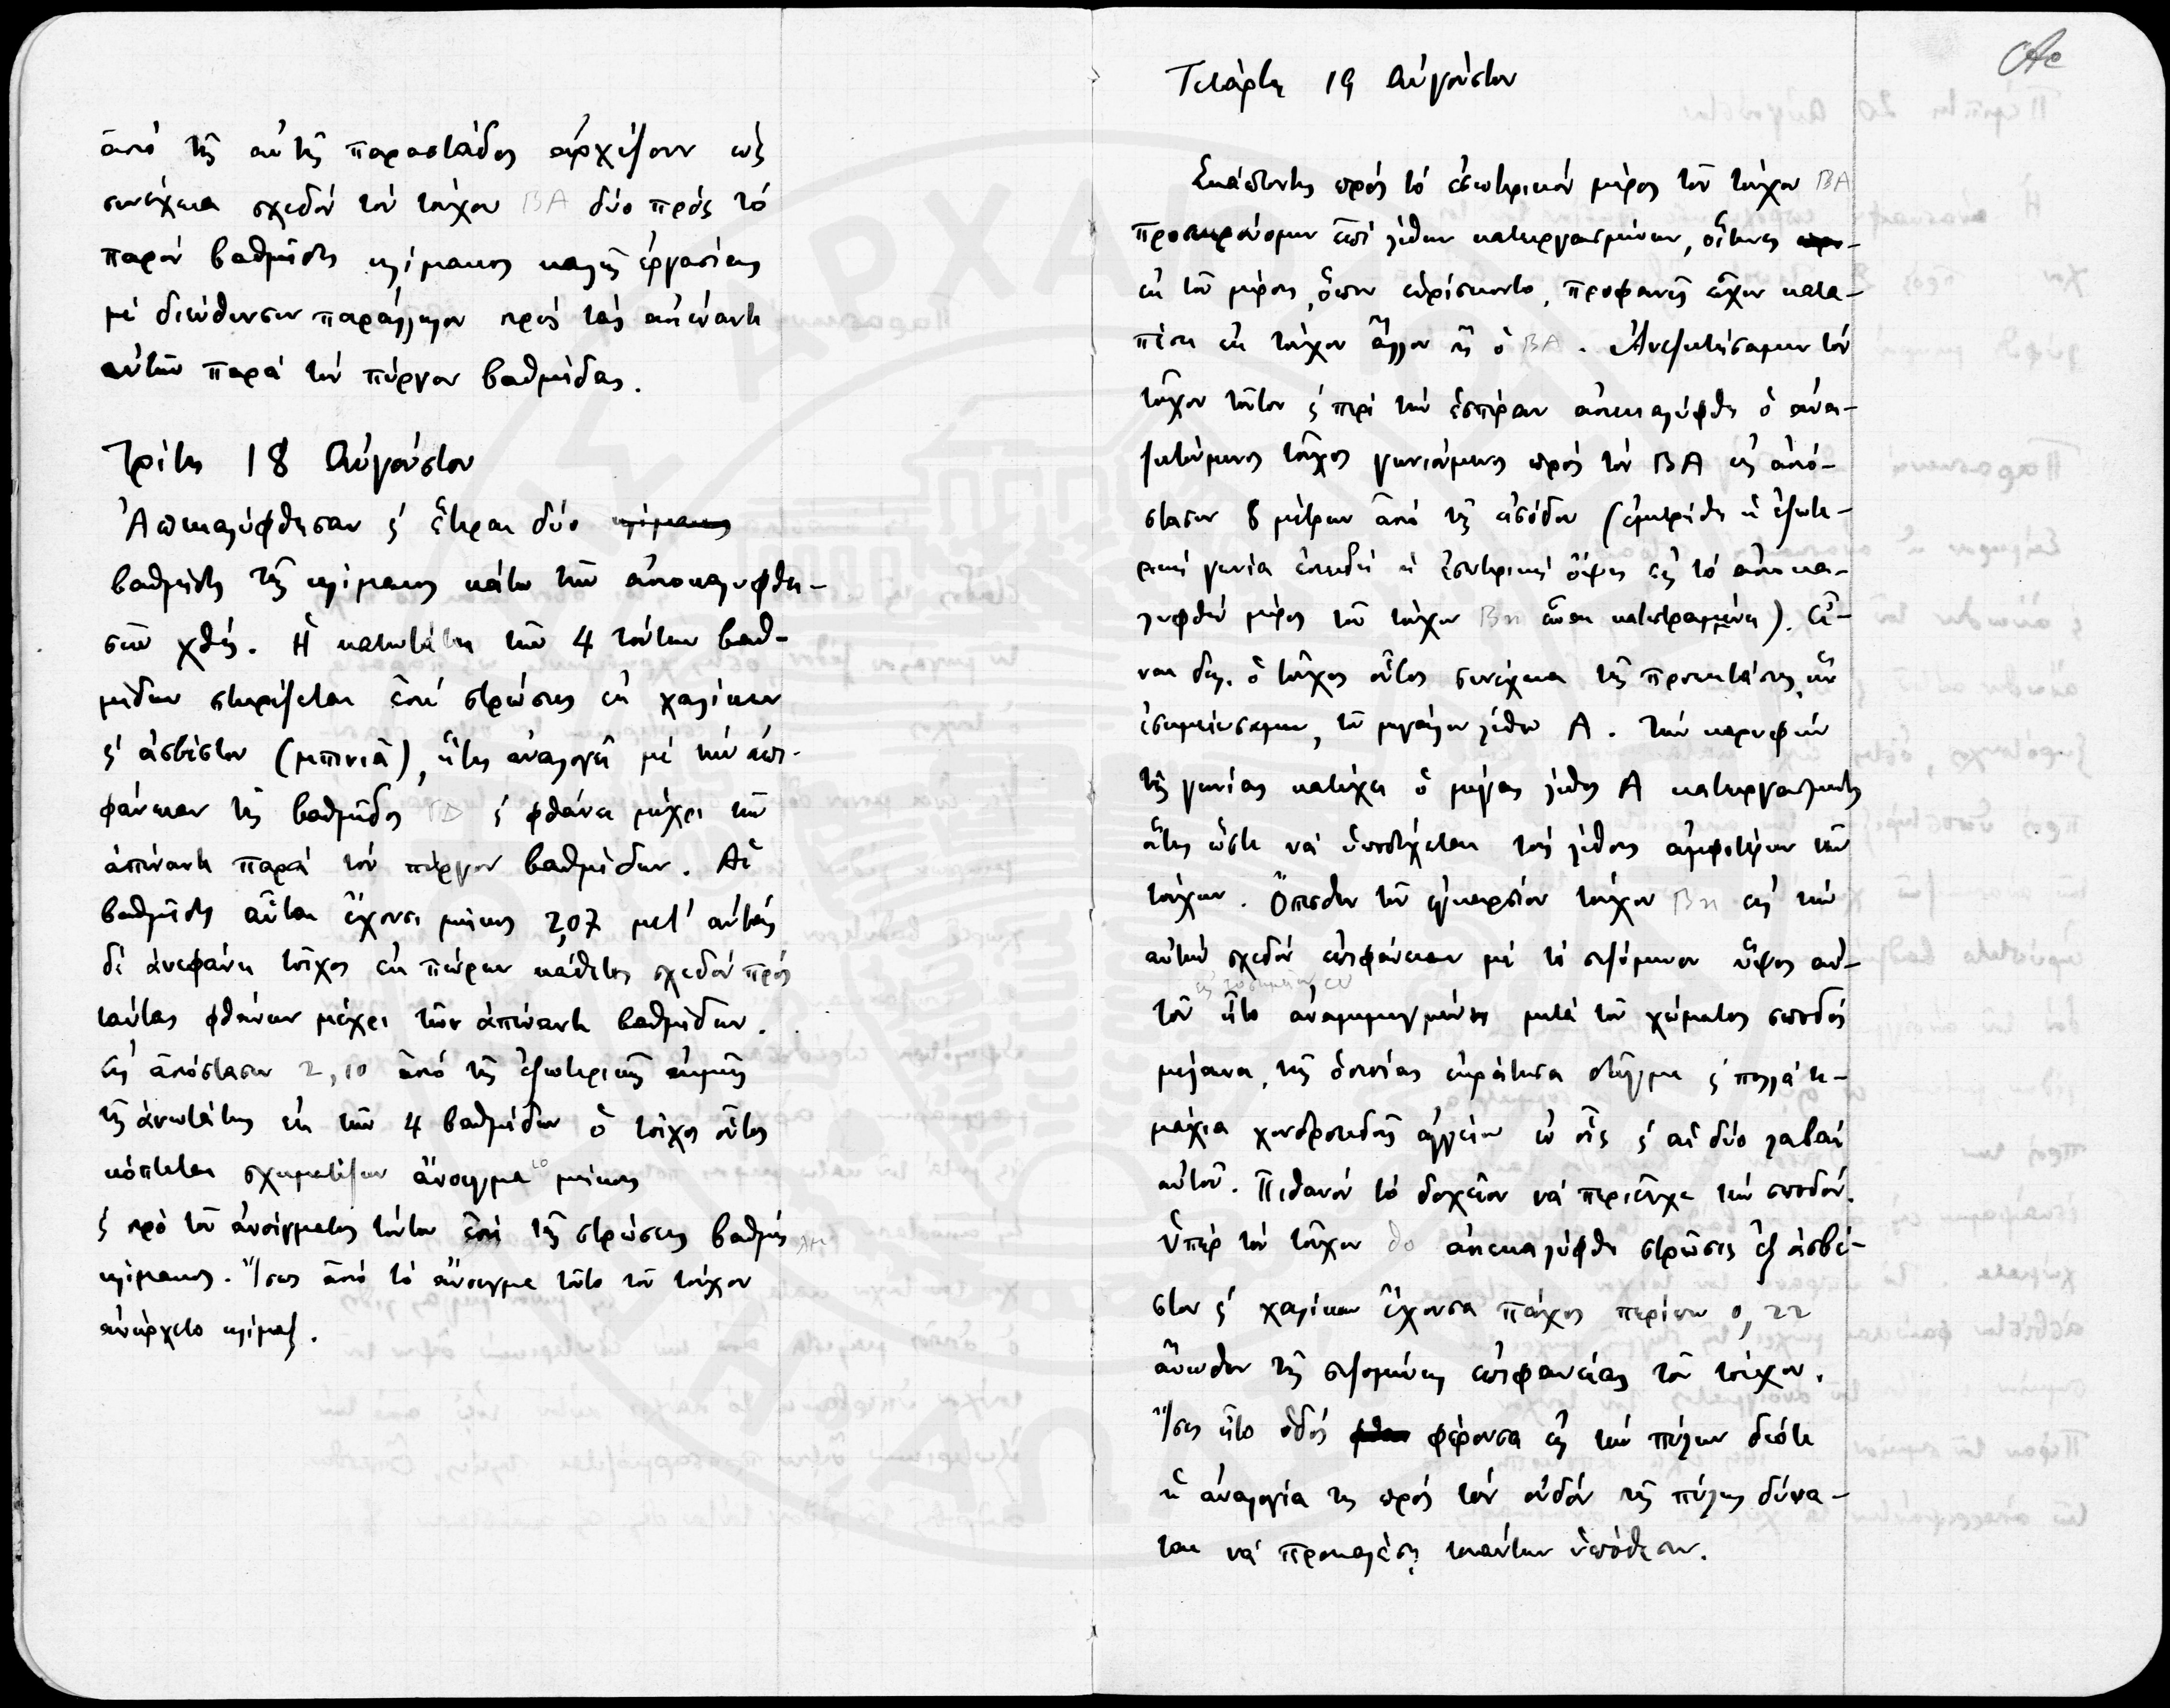 ἀπό τῆς αὐτῆς παραστάδος ἀρχίζουν ὡς
συνέχεια σχεδόν τοῦ τοίχου ΒΑ δύο πρός τό
παρόν βαθμῖδες κλίμακος καλῆς ἐργασίας
μέ διεύθυνσιν παράλληλον πρός τάς ἀπέναντι
αὐτῶν παρά τόν πύργον βαθμίδας.
Τρίτη 18 Αὐγούστου
Ἀπεκαλύφθησαν ϛ ἕτεραι δύο κλίμακος
βαθμῖδες τῆς κλίμακος κάτω τῶν ἀποκαλυφθει-
σῶν χθές. Ἡ κατωτάτη τῶν 4 τούτων βαθ-
μίδων στηρίζεται ἐπί στρώσεως ἐκ χαλίκων
ϛ ἀσβέστου (μπινιᾶ), ἥτις ἀναλογεῖ μέ τήν ἐπι-
φάνειαν τῆς βαθμῖδος ΓΔ ϛ φθάνει μέχρι τῶν
ἀπέναντι παρά τόν πύργον βαθμίδων. Αἱ
βαθμῖδες αὗται ἔχουσι μῆκος 2,07 μετ' αὐτάς
δέ ἀνεφάνη τοῖχος ἐκ πώρων κάθετος σχεδόν πρός
ταύτας φθάνων μέχρι τῶν ἀπέναντι βαθμίδων.
Εἰς ἀπόστασιν 2,10 ἀπό τῆς ἐξωτερικῆς ἀκμῆς
τῆς ἀνωτάτης ἐκ τῶν 4 βαθμίδων ὁ τοῖχος οὗτος
κόπτεται σχηματίζων ἄνοιγμα μήκους
ϛ πρό τοῦ ἀνοίγματος τούτου ἐπί τῆς στρώσεως βαθμίς
κλίμακος. Ἴσως ἀπό τό ἄνοιγμα τοῦτο τοῦ τοίχου
ἀνήρχετο κλίμαξ.
Τετάρτη 19 Αὐγούστου
Σκάπτοντες πρός τό ἐσωτερικόν μέρος τοῦ τοίχου ΒΑ
προσεκρούσαμεν ἐπί λίθων κατειργασμένων, οἵτινες
ἐκ τοῦ μέρους, ὅπου εὑρίσκοντο, προφανῶς εἶχον κατα-
πέσει ἐκ τοίχου ἄλλου ἢ ὁ ΒΑ. Ἀνεζητήσαμεν τόν
τοῖχον τοῦτον ϛ περί τήν ἑσπέραν ἀπεκαλύφθη ὁ ἀνα-
ζητούμενος τοῖχος γωνιούμενος πρός τόν ΒΑ εἰς ἀπό-
στασιν 8 μέτρων ἀπό τῆς εἰσόδου (ἐμετρήθη ἡ ἐξωτε-
ρική γωνία ἐπειδή ἡ ἐσωτερική ὄψις εἰς τό ἀποκα-
λυφθέν μέρος τοῦ τοίχου Βπ εἶναι κατεστραμμένη). Εἶ-
ναι δηλ. ὁ τοῖχος οὗτος συνέχεια τῆς προεκτάσεως, ἣν
ἐσημειώσαμεν, τοῦ μεγάλου λίθου Α. Τήν κορυφήν
τῆς γωνίας κατέχει ὁ μέγας λίθος Α κατειργασμένος
οὕτως ὥστε νά ὑποδέχεται τούς λίθους ἀμφοτέρων τῶν
τοίχων. Ὄπισθεν τοῦ ἐγκαρσίου τοίχου Βπ εἰς τήν
αὐτήν σχεδόν ἐπιφάνειαν μέ τό σωζόμενον ὕψος αὐ-
τοῦ ἦτο ἀναμεμιγμένη μετά τοῦ χώματος σποδός
μέλαινα, τῆς ὁποίας ἐκράτησα δεῖγμα ϛ πολλά τε-
μάχια χονδροειδοῦς ἀγγείου ἐν οἷς ϛ αἱ δύο λαβαί
αὐτοῦ. Πιθανόν τό δοχεῖον νά περιεῖχε τήν σποδόν.
Ὑπέρ τόν τοῖχον δο ἀπεκαλύφθη στρῶσις ἐξ ἀσβέ-
στου ϛ χαλίκων ἔχουσα πάχος περίπου 0,22
ἄνωθεν τῆς σωζομένης ἐπιφανείας τοῦ τοίχου.
Ἴσως ἦτο ὁδός φέρουσα εἰς τήν πύλην διότι
ἡ ἀναλογία της πρός τόν οὐδόν τῆς πύλης δύνα-
ται νά προκαλέσῃ τοιαύτην ὑπόθεσιν.